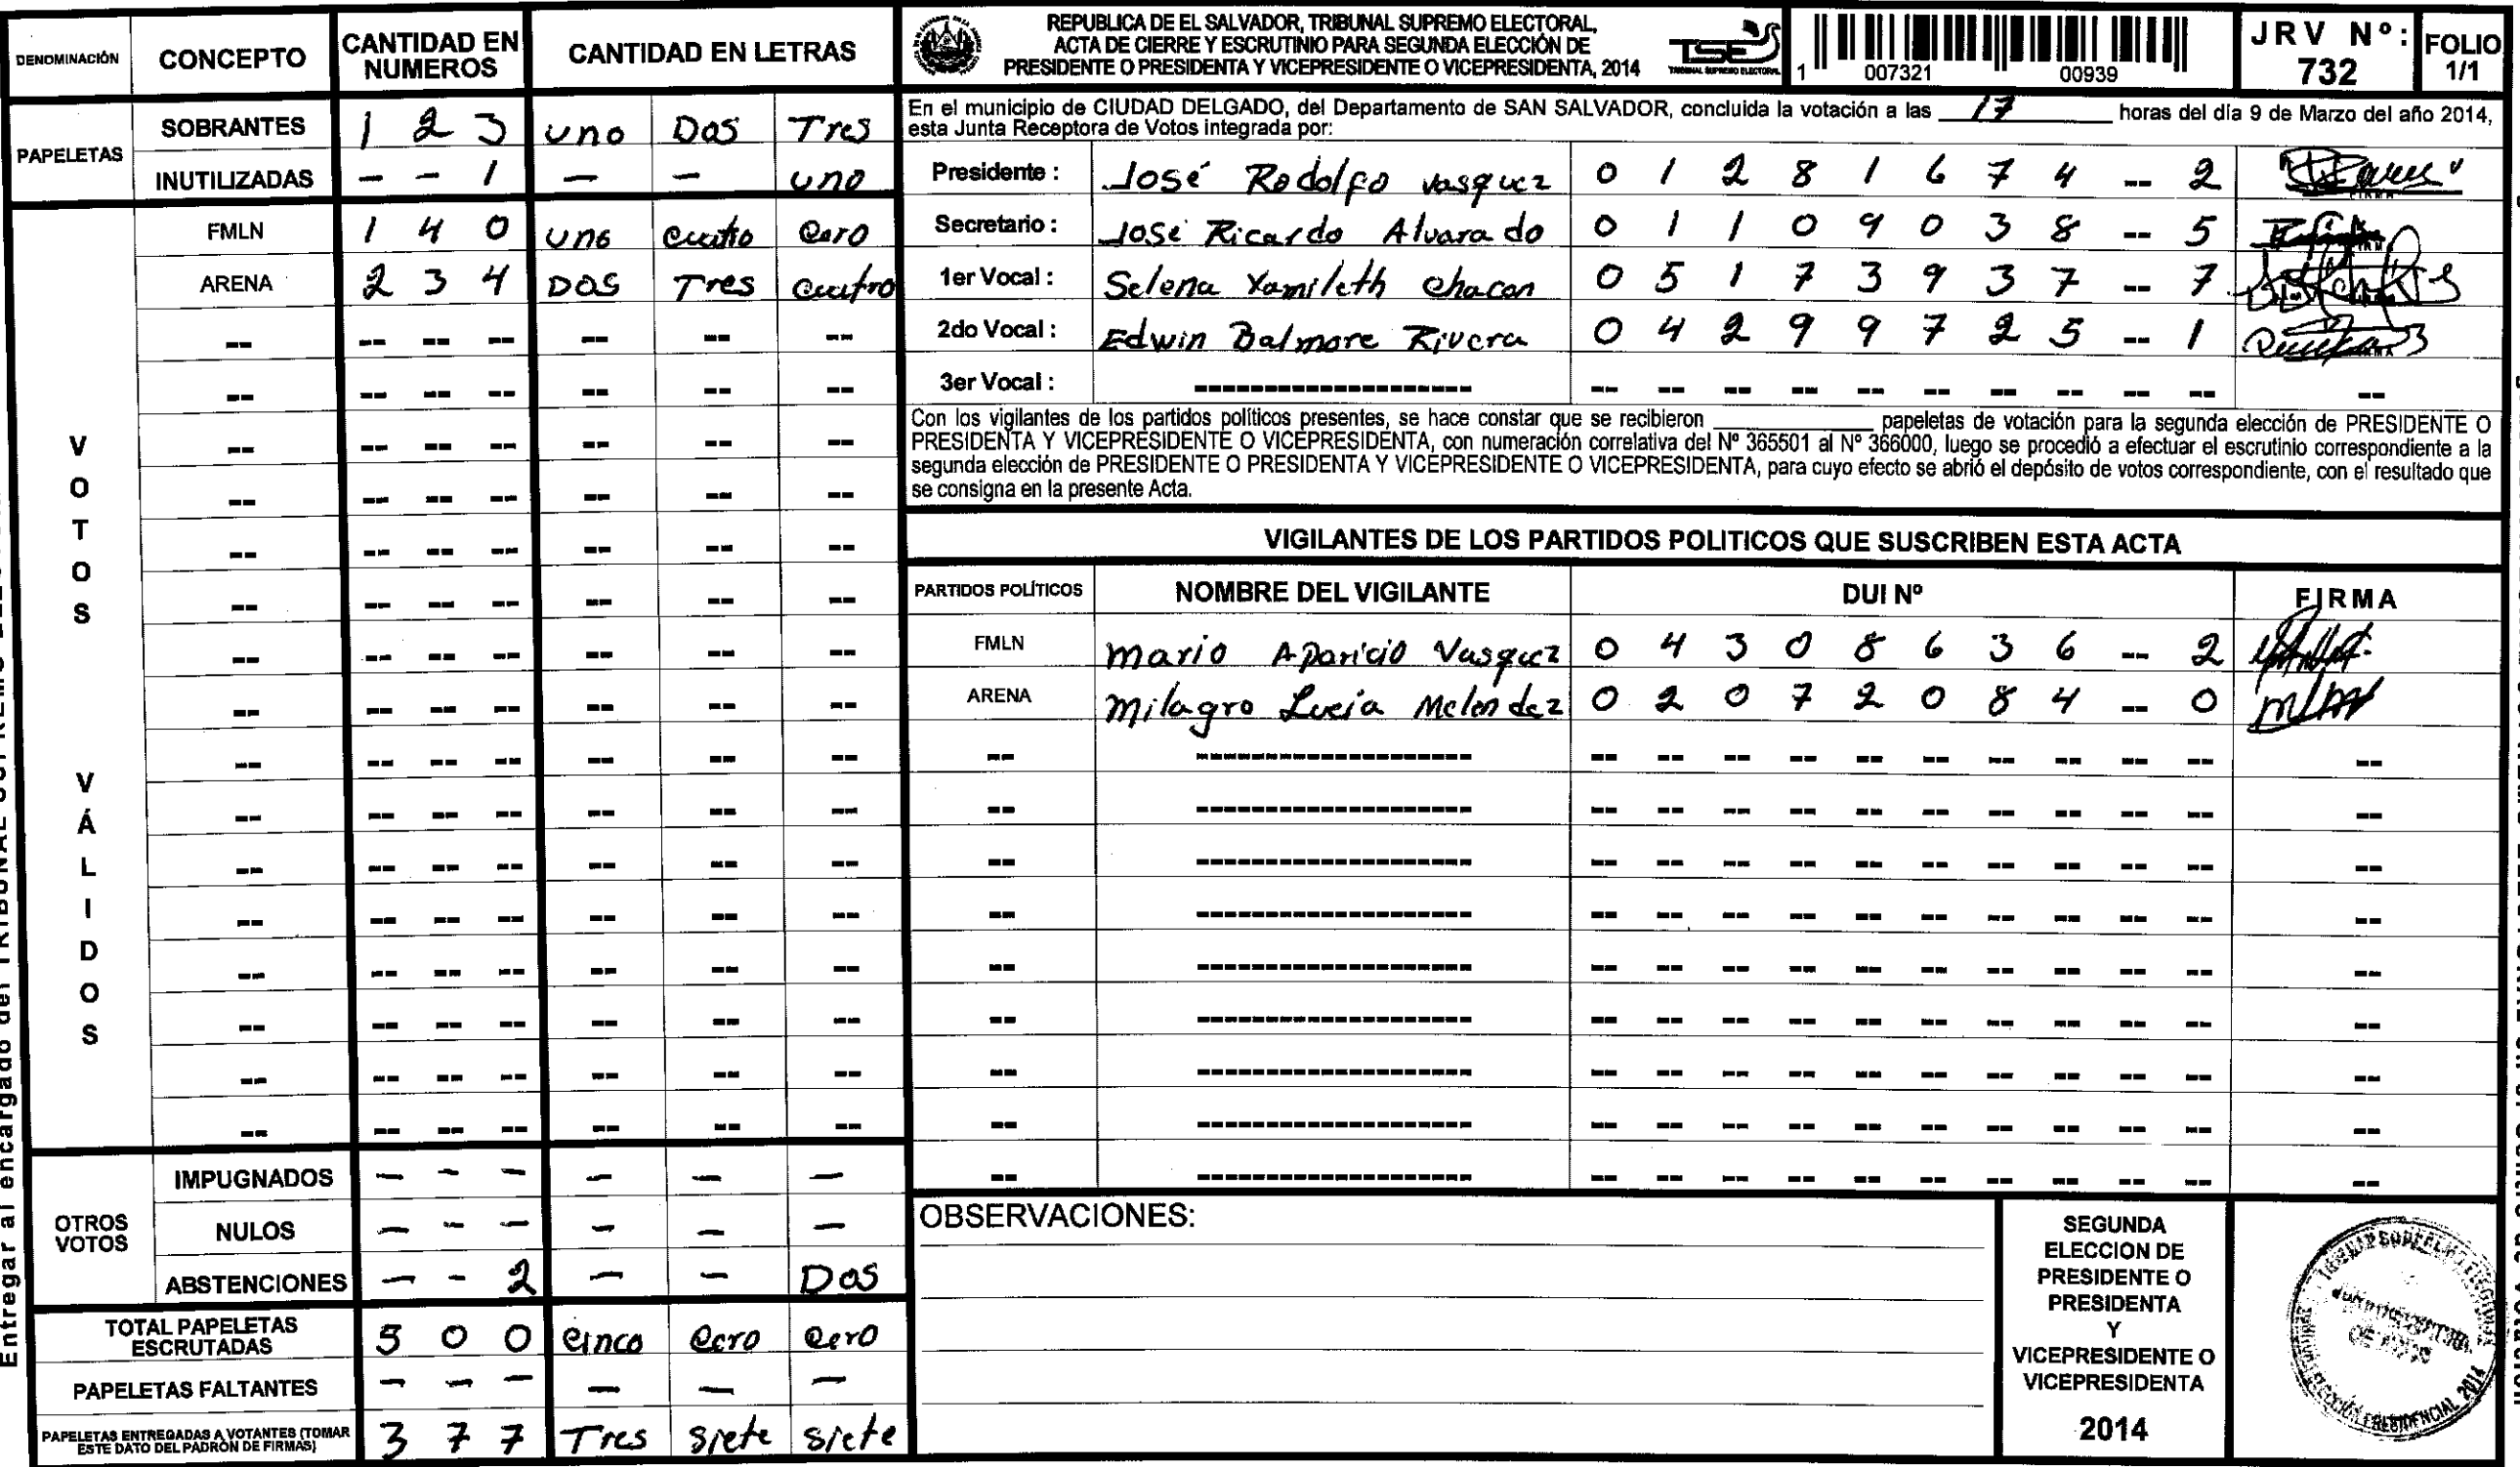 DENOMINACIÓN CONCEPTO CANTIDAD EN NUMEROS CANTIDAD EN LETRAS
PAPELETAS
SOBRANTES 1 2 3 uno Dos Tres
INUTILIZADAS – – 1 – – uno
VOTOS VÁLIDOS
FMLN 1 4 0 uno cuatro cero
ARENA 2 3 4 DOS Tres cuatro
-- -- -- -- -- -- --
-- -- -- -- -- -- --
-- -- -- -- -- -- --
-- -- -- -- -- -- --
-- -- -- -- -- -- --
-- -- -- -- -- -- --
-- -- -- -- -- -- --
-- -- -- -- -- -- --
-- -- -- -- -- -- --
-- -- -- -- -- -- --
-- -- -- -- -- -- --
-- -- -- -- -- -- --
-- -- -- -- -- -- --
-- -- -- -- -- -- --
-- -- -- -- -- -- --
-- -- -- -- -- -- --
OTROS VOTOS
IMPUGNADOS – – – – – –
NULOS – – – – – –
ABSTENCIONES – – 2 – – Dos
TOTAL PAPELETAS ESCRUTADAS 5 0 0 cinco cero cero
PAPELETAS FALTANTES – – – – – –
PAPELETAS ENTREGADAS A VOTANTES (TOMAR ESTE DATO DEL PADRÓN DE FIRMAS) 3 7 7 Tres siete siete
REPUBLICA DE EL SALVADOR, TRIBUNAL SUPREMO ELECTORAL,
ACTA DE CIERRE Y ESCRUTINIO PARA SEGUNDA ELECCIÓN DE
PRESIDENTE O PRESIDENTA Y VICEPRESIDENTE O VICEPRESIDENTA, 2014
TSE
TRIBUNAL SUPREMO ELECTORAL
1 007321 00939
JRV Nº: 732
FOLIO 1/1
En el municipio de CIUDAD DELGADO, del Departamento de SAN SALVADOR, concluida la votación a las 17 horas del día 9 de Marzo del año 2014,
esta Junta Receptora de Votos integrada por:
Presidente : José Rodolfo vasquez 0 1 2 8 1 6 7 4 -- 2
Secretario : José Ricardo Alvarado 0 1 1 0 9 0 3 8 -- 5
1er Vocal : Selena Xamileth chacon 0 5 1 7 3 9 3 7 -- 7
2do Vocal : Edwin Balmore Rivera 0 4 2 9 9 7 2 5 -- 1
3er Vocal : -------------------- -- -- -- -- -- -- -- -- -- -- --
Con los vigilantes de los partidos políticos presentes, se hace constar que se recibieron ________ papeletas de votación para la segunda elección de PRESIDENTE O
PRESIDENTA Y VICEPRESIDENTE O VICEPRESIDENTA, con numeración correlativa del Nº 365501 al Nº 366000, luego se procedió a efectuar el escrutinio correspondiente a la
segunda elección de PRESIDENTE O PRESIDENTA Y VICEPRESIDENTE O VICEPRESIDENTA, para cuyo efecto se abrió el depósito de votos correspondiente, con el resultado que
se consigna en la presente Acta.
VIGILANTES DE LOS PARTIDOS POLITICOS QUE SUSCRIBEN ESTA ACTA
PARTIDOS POLÍTICOS NOMBRE DEL VIGILANTE DUI Nº FIRMA
FMLN Mario Aparicio Vasquez 0 4 3 0 8 6 3 6 -- 2
ARENA Milagro Lucia Melendez 0 2 0 7 2 0 8 4 -- 0
-- -------------------- -- -- -- -- -- -- -- -- -- -- --
-- -------------------- -- -- -- -- -- -- -- -- -- -- --
-- -------------------- -- -- -- -- -- -- -- -- -- -- --
-- -------------------- -- -- -- -- -- -- -- -- -- -- --
-- -------------------- -- -- -- -- -- -- -- -- -- -- --
-- -------------------- -- -- -- -- -- -- -- -- -- -- --
-- -------------------- -- -- -- -- -- -- -- -- -- -- --
-- -------------------- -- -- -- -- -- -- -- -- -- -- --
-- -------------------- -- -- -- -- -- -- -- -- -- -- --
OBSERVACIONES:
SEGUNDA
ELECCION DE
PRESIDENTE O
PRESIDENTA
Y
VICEPRESIDENTE O
VICEPRESIDENTA
2014
PRESIDENCIAL 2014
Entregar al encargado del TRIBUNAL